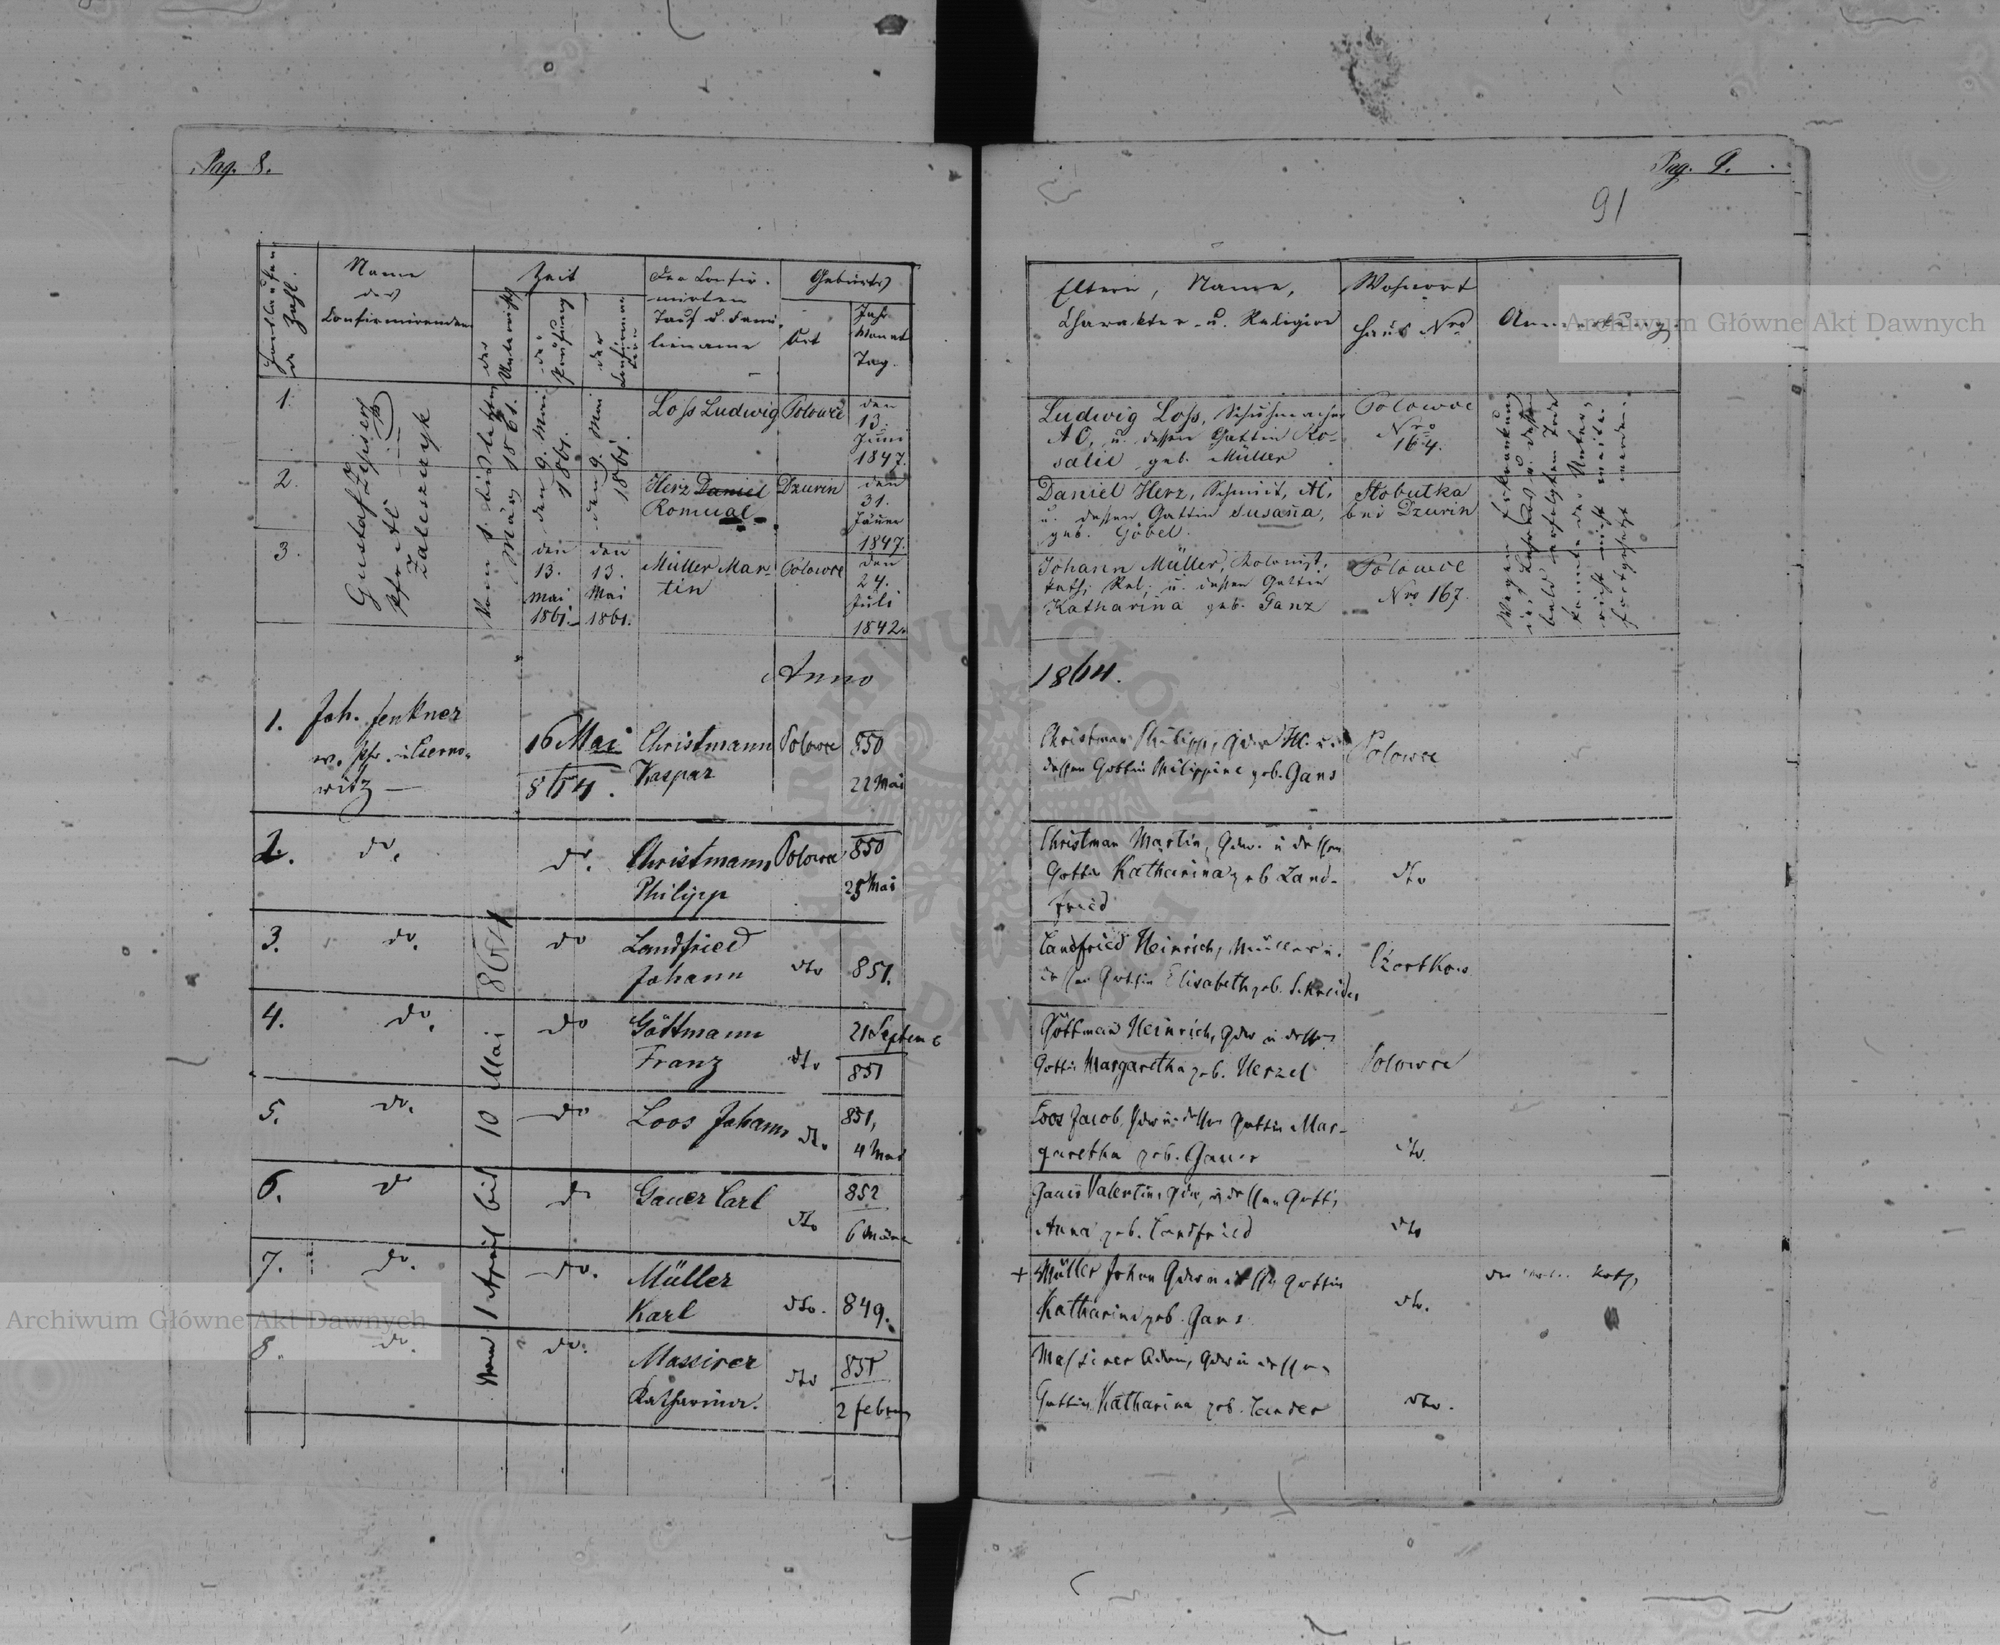 Pag. 8.
Fortlaufende Zahl.
Name
des
Confirmirenden
Zeit
des Unterrichts
der Prüfung
der Confirmation
Der Confir-
mirten
Tauf u. Fami-
lienname
Geburts
Ort
Jahr
Monat
Tag.
1.
Gustaf
Pfr.
Zaleszczyk
Vom 1. bis letzten
März 1861.
den 9. Mai
1861.
den 9. Mai
1861.
Loss Ludwig
Polowce
den
13.
Juni
1847.
2.
Herz Daniel
Romual
Dzurin
den
31.
Jäner
1847.
3.
den
13.
Mai
1861.
den
13.
Mai
1861.
Müller Mar-
tin
Polowce
den
24.
Juli
1842.
Anno
1.
Joh. Jenkner
w. Pfr. in Czerno-
witz —
Vom 1 April bis 10 Mai 864
16 Mai
864.
Christmann
Kaspar
Polowce
850
22 Mai
2.
do.
do.
Christmann
Philipp
Polowce
850
25 Mai
3.
do.
do
Landfried
Johann
dto
851.
4.
do.
do
Göttmann
Franz
dto
21 Septem
851
5.
do.
do
Loos Johann
dto
851,
4 Mai
6.
do
do
Gauer Carl
dto
852
6 März
7.
do.
do.
Müller
Karl
dto.
849.
8.
do.
do.
Massirer
Katharina.
dto
851
2 Febru
Pag. 9.
91
Eltern, Name,
Charakter u. Religion
Wohnort
Haus Nro
Anmerkung.
Ludwig Loss, Schuhmacher
A C, u. dessen Gattin Ro-
salie geb. Müller
Polowce
Nro
164.
Daniel Herz, Schmit, A.
u. dessen Gattin Susana,
geb. Göbel.
Stobutka
bei Dzurin
Johann Müller, Kolonist,
kath. Rel. u. dessen Gattin
Katharina geb. Ganz
Polowce
Nro 167.
Wegen Erkrankung
des Lehrers u. dessen
bald erfolgtem Tode
konnte der Unter-
richt nicht weiter
fortgesetzt werden.
1864.
Christman Philipp, Gdw HC. u.
dessen Gattin Philippine geb. Gans
Polowce
Christman Martin, Gdw. u dessen
Gattin Katharina geb Land-
fried
dto
Landfried Heinrich, Müller u.
dessen Gattin Elisabeth geb. Schneider
Czortkow
Göttman Heinrich, Gdw u dessen
Gattin Margaretha geb. Herzel
Polowce
Loos Jacob, Gdw u dessen Gattin Mar-
garetha geb. Gauer
dto.
Gauer Valentin, Gdw, u dessen Gattin
Anna geb. Landfried
dto
+ Müller Johan Gdw u dessen Gattin
Katharina geb. Gans
dto.
der Vater Kath,
Massirer Adam, Gdw u dessen
Gattin Katharina geb. Lander
dto.
Archiwum Główne Akt Dawnych
Archiwum Główne Akt Dawnych
ARCHIWUM GŁÓWNE AKT DAWNYCH